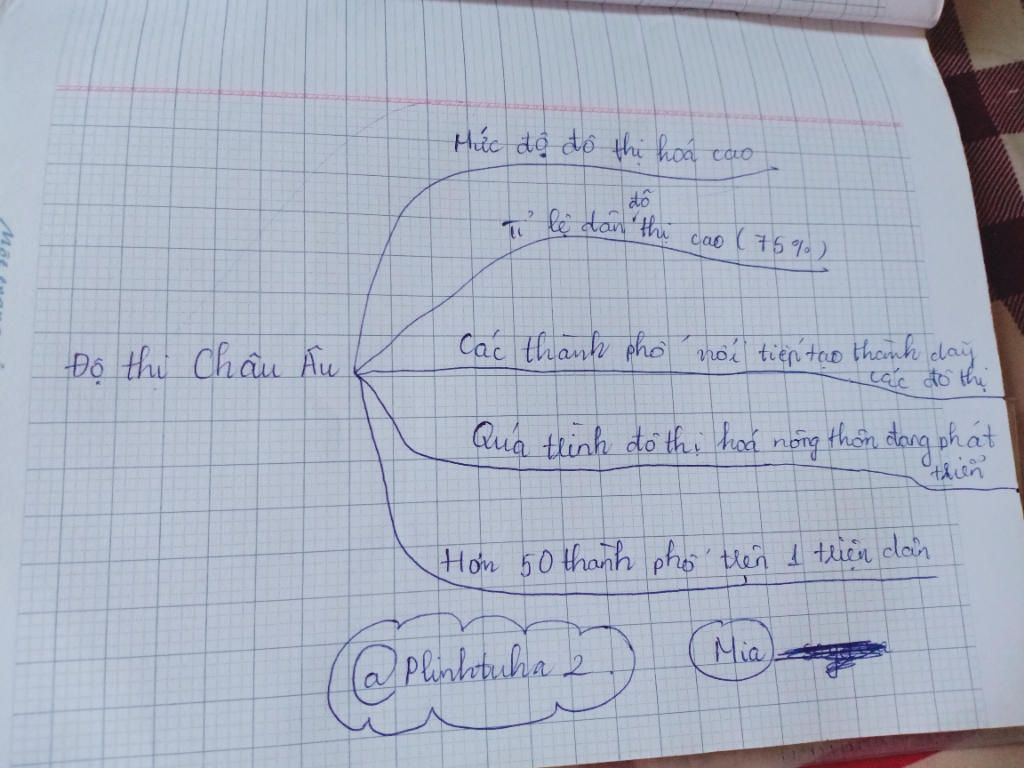 Mức độ đô thị hoá cao
đô
Tỉ lệ dân thị cao (75%)
Các thành phố nối tiếp tạo thành dãy
các đô thị
Độ thị Châu Âu
Quá trình đô thị hoá nông thôn đang phát
triển
Hơn 50 thành phố trên 1 triện dân
@ Plinhtuha 2
Mia